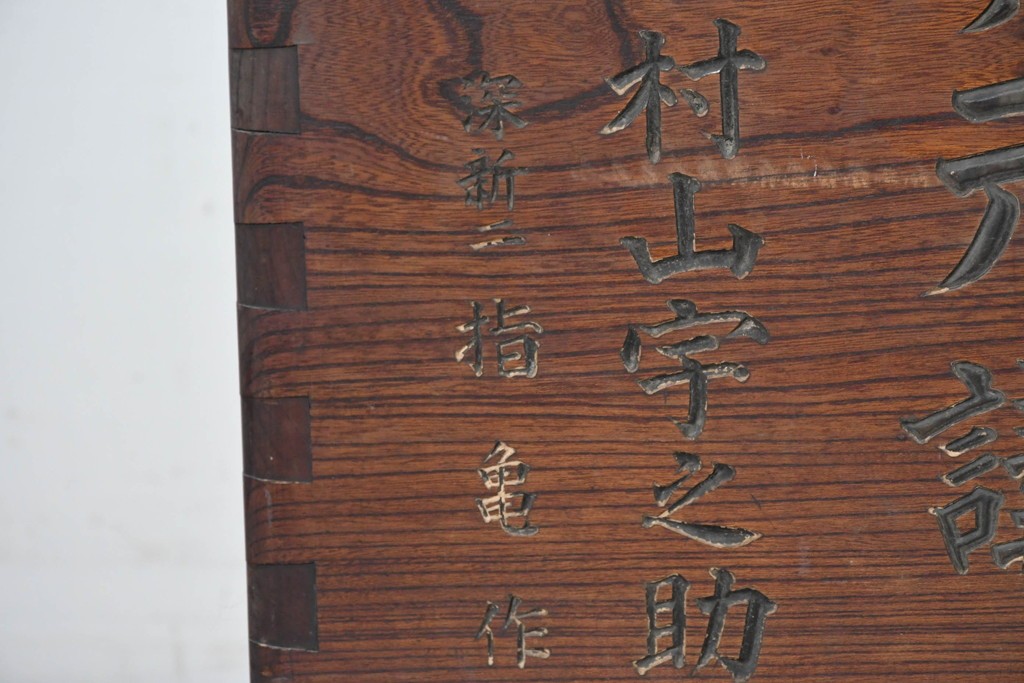 村山宇之助
深新二 指 亀 作